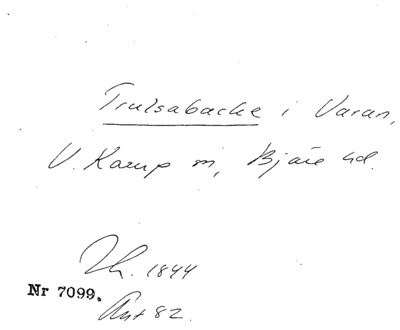 Trulsabacke i Varan,
V. Karup sn, Bjäre hd.
Th. 1844
Nr 7099.
Ant 82.